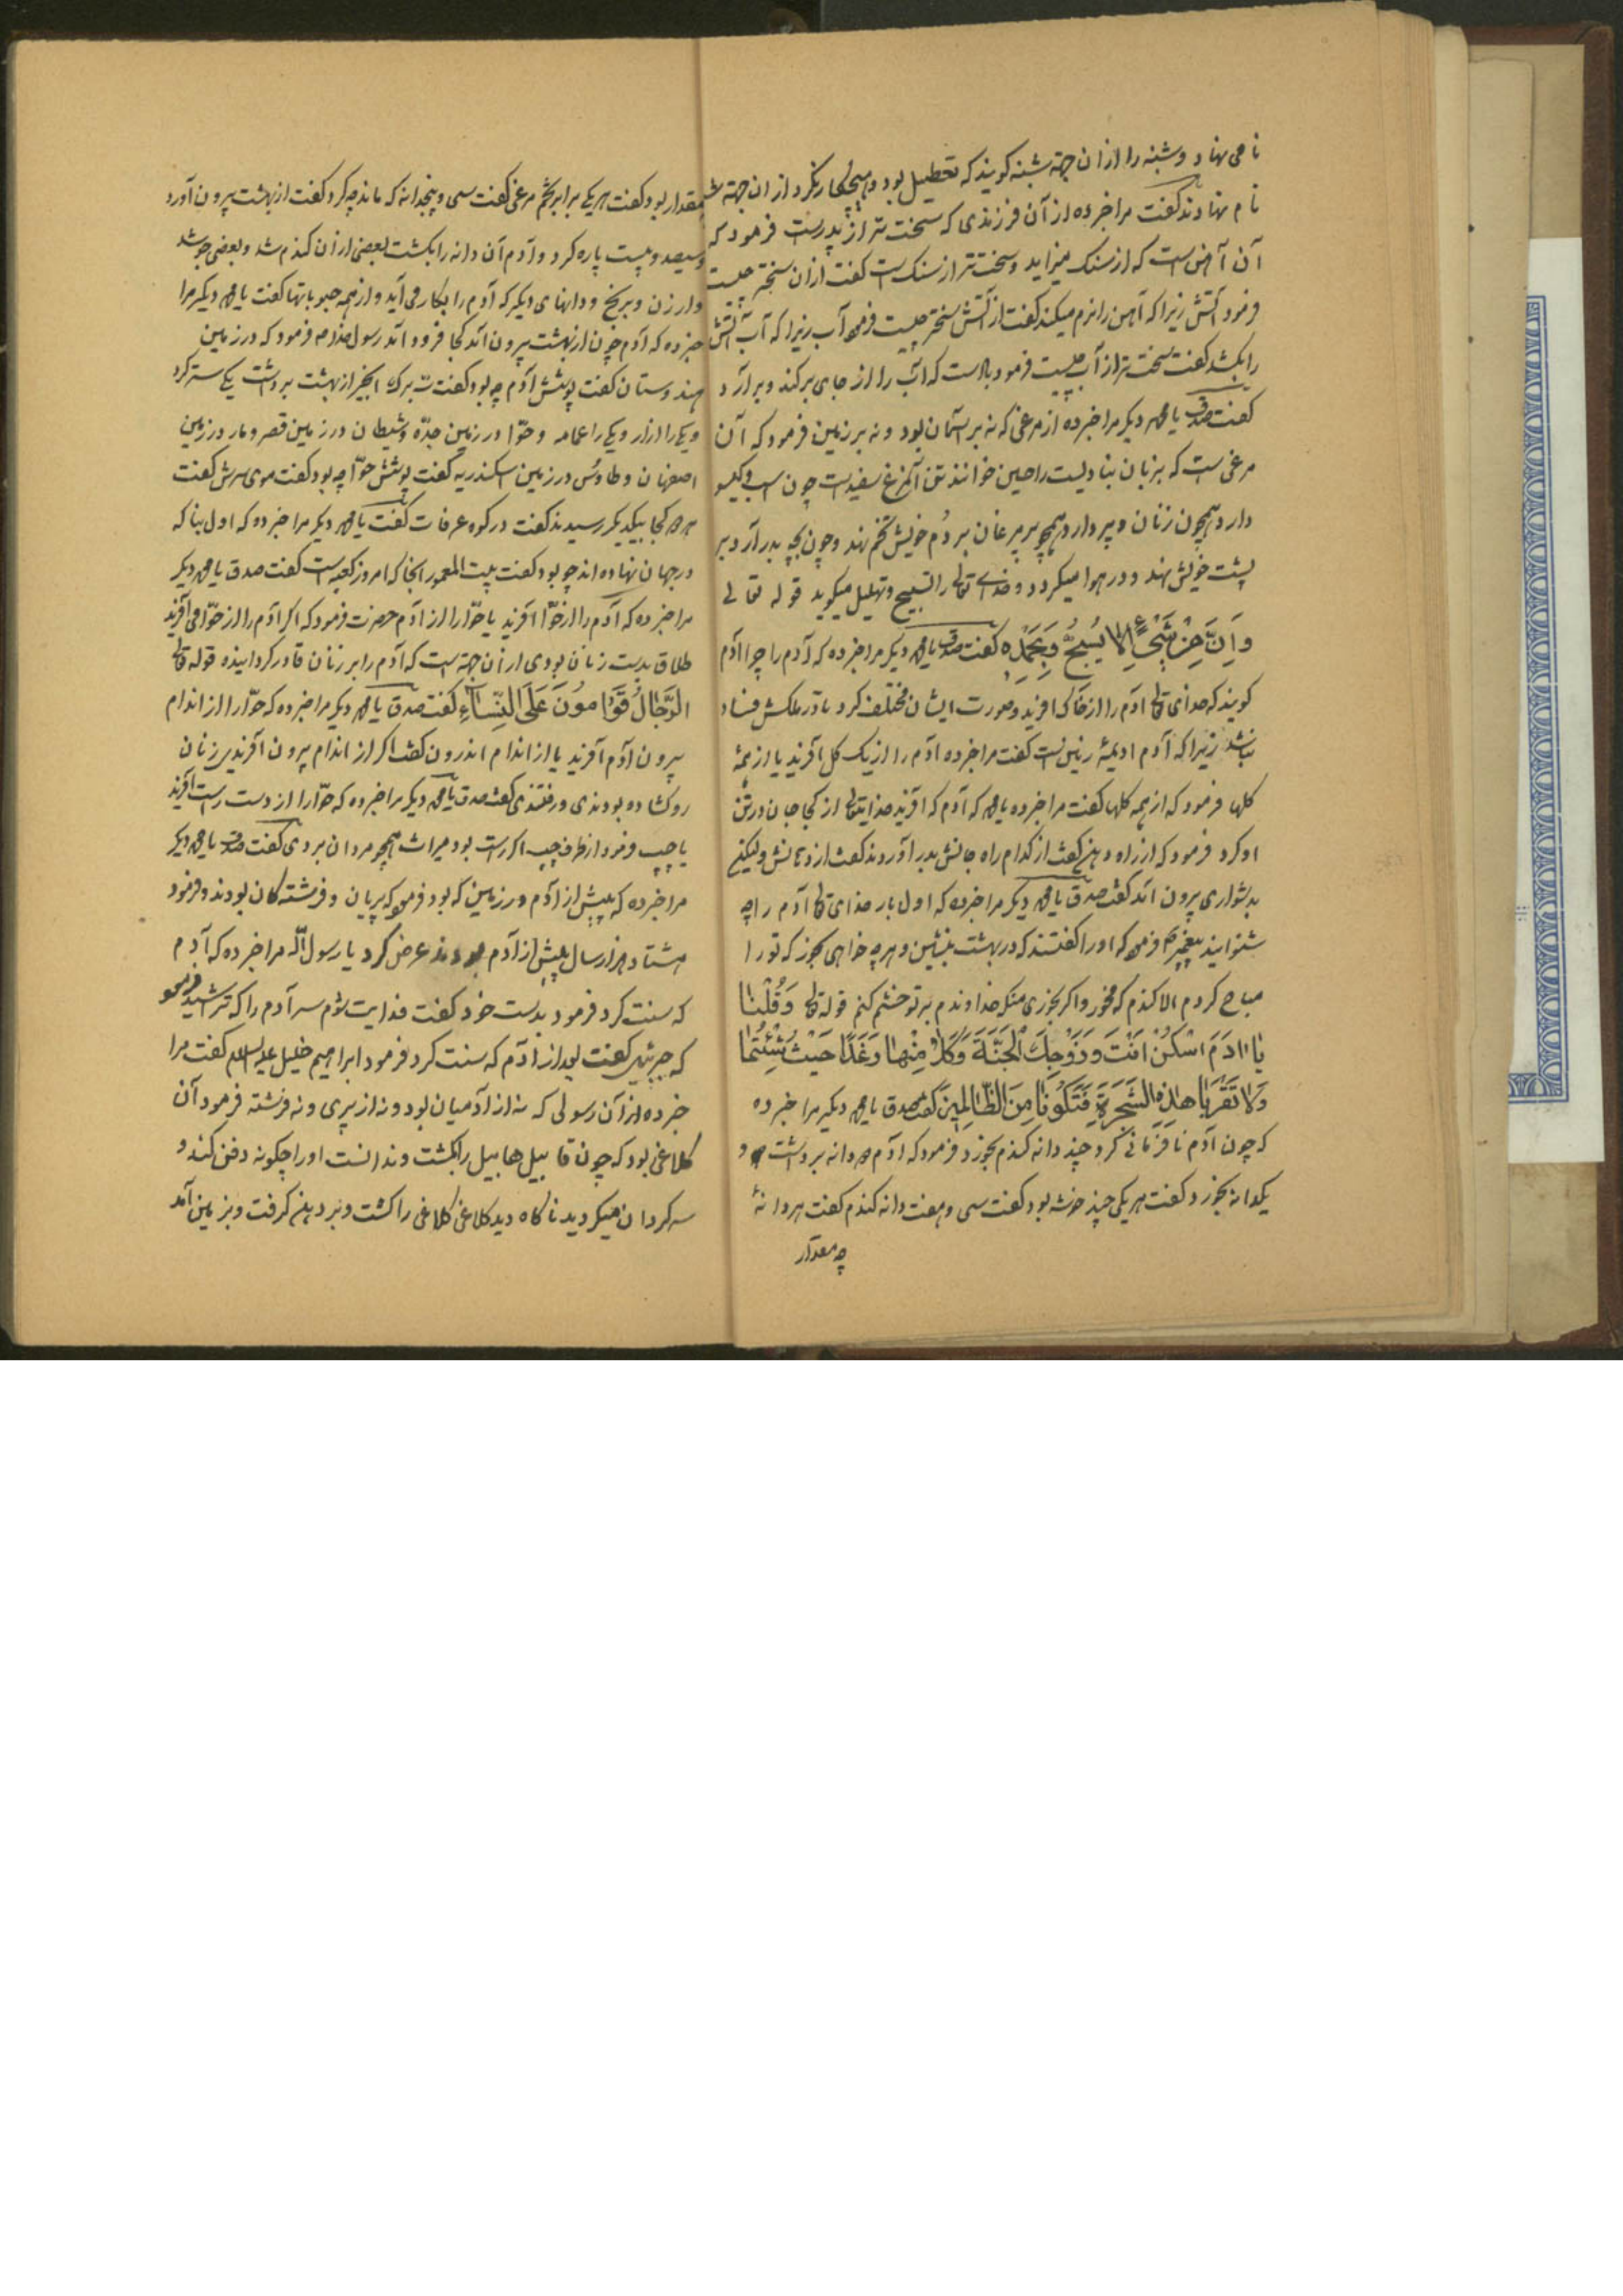 نامی نهاد و شنبه را از ان جهة شنبه کویند که تعطیل بود و هیچکار نکرد از ان جهة
نام نهادند کفت مرا خبر ده از آن فرزندی که سخت تر از پدرست فرمود که
آن آهن است که از سنک میزاید و سخت تر از سنک است کفت از ان سختر چیست
فرمود آتش زیرا که آهن را نرم میکند کفت از آتش سختر چیست فرمود آب زیرا که آب آتش
را بکشد کفت سخت تر از آب چیست فرمود باد است که آب را از جای برکند و برآرد
کفت صدق یا محمد دیکر مرا خبر ده از مرغی که نه بر آسمان بود و نه بر زمین فرمود که آن
مرغی است که بزبان خوانند تن آنمرغ سفید است چون اسب و کیسو
دارد همچون زنان و پر دارد همچو پر مرغان بر دُم خویش تخم نهد و چون بچه بدر آرد بر
پشت خویش نهد و در هوا میکردد و خدای تعالی را تسبیح و تهلیل میکوید قوله تعالی
وَاِنَّ مِنْ شَیْءٍ اِلّا یُسَبِّحُ بِحَمْدِهِ کفت صدق یا محمد دیکر مرا خبر ده که آدم را چرا آدم
کویند که خدای تعالی آدم را از خاک افرید و صورت ایشان مختلف کرد تا در ملکش فساد
نباشد زیرا که آدم از زمین است کفت مرا خبر ده آدم را از یک کل آفرید یا از همهٔ
کلها فرمود که از همه کلها کفت مرا خبر ده یا محمد که آدم که افرید خدایتعالی از کجا جان در تن
او کرد فرمود که از راه دهن کفت از کدام راه جانش بدر آوردند کفت از دهانش ولیکن
بدشواری بیرون آمد کفت صدق یا محمد دیکر مرا خبر ده که اول بار خدای تعالی آدم را چه
شنوانید پیغمبر فرمود که او را کفتند که در بهشت بنشین و هر چه خواهی بخور که تو را
مباح کردم الا کندم که مخور و اکر بخوری منکه خداوندم بر تو خشم کنم قوله تعالی وَقُلْنا
یا ادَمَ اسْکُنْ اَنْتَ وَزَوْجُكَ الْجَنَّةَ وَکُلا مِنْها رَغَدًا حَیْثُ شِئْتُما
وَلا تَقْرَبا هذِهِ الشَّجَرَةَ فَتَکُونا مِنَ الظّالِمِینَ کفت صدق یا محمد دیکر مرا خبر ده
که چون آدم نافرمانی کرد چند دانه کندم بخورد فرمود که آدم دانه برداشت و
یکدانه بخورد کفت هر یکی چند خوشه بود کفت سی و هفت دانه کندم کفت هر دانهٔ
چه مقدار
مقدار بود کفت هر یکی برابر تخم مرغی کفت سی و پنجدانه که ماند چه کرد کفت از بهشت بیرون آورد
و سیصد و بیست پاره کرد و آدم آن دانه را بکشت بعضی از آن کندم شد و بعضی جو شد
و ارزن و برنج و دانهای دیکر که آدم را بکار می آید و از همه حبوباتها کفت یا محمد دیکر مرا
خبر ده که آدم چون از بهشت بیرون آمد کجا فرود آمد رسول خدا ص فرمود که در زمین
هندوستان کفت پوشش آدم چه بود کفت برك انجیر از بهشت برداشت یکی ستر کرد
و یکی را ازار و یکی را عمامه و حوّا در زمین جدّه و شیطان در زمین قصر و مار در زمین
اصفهان و طاوس در زمین اسکندریه کفت پوشش حوّا چه بود کفت موی سرش کفت
کجا بیکدیکر رسیدند کفت در کوه عرفات کفت یا محمد دیکر مرا خبر ده که اول بنا که
در جهان نهاده اند چه بود کفت بیت المعمور انجا که امروز کعبه است کفت صدق یا محمد دیکر
مرا خبر ده که آدم را از حوّا آفرید یا حوّا را از آدم حضرت فرمود که اکر آدم را از حوّا می آفرید
طلاق بدست زنان بودی از آن جهة است که آدم را بر زنان قادر کردانیده قوله تعالی
الرِّجالُ قَوّامُونَ عَلَی النِّساءِ کفت صدق یا محمد دیکر مرا خبر ده که حوّا را از اندام
بیرون آدم آفرید یا از اندام اندرون کفت اکر از اندام بیرون آفریدی زنان
رو کشاده بودندی و رفتندی کفت صدق یا محمد دیکر مرا خبر ده که حوّا را از دست راست آفرید
یا چپ فرمود از طرف چپ اکر راست بود میراث همچو مردان بردی کفت صدق یا محمد دیکر
مرا خبر ده که پیش از آدم در زمین که بود فرمود که پریان و فرشتکان بودند و فرمود
هشتاد هزار سال پیش از آدم بودند عرض کرد یا رسول اللّه مرا خبر ده که آدم
که سنت کرد فرمود بدست خود کفت فدایت شوم سر آدم را که تراشید فرمود
که جبرئیل کفت بعد از آدم که سنت کرد فرمود ابراهیم خلیل علیه السلام کفت مرا
خبر ده از آن رسولی که نه از آدمیان بود و نه از پری و نه فرشته فرمود آن
کلاغی بود که چون قابیل هابیل را بکشت و ندانست او را چکونه دفن کند و
سرکردان میکردید ناکاه دید کلاغی کلاغی را کشت و بر دهن کرفت و بزمین آمد